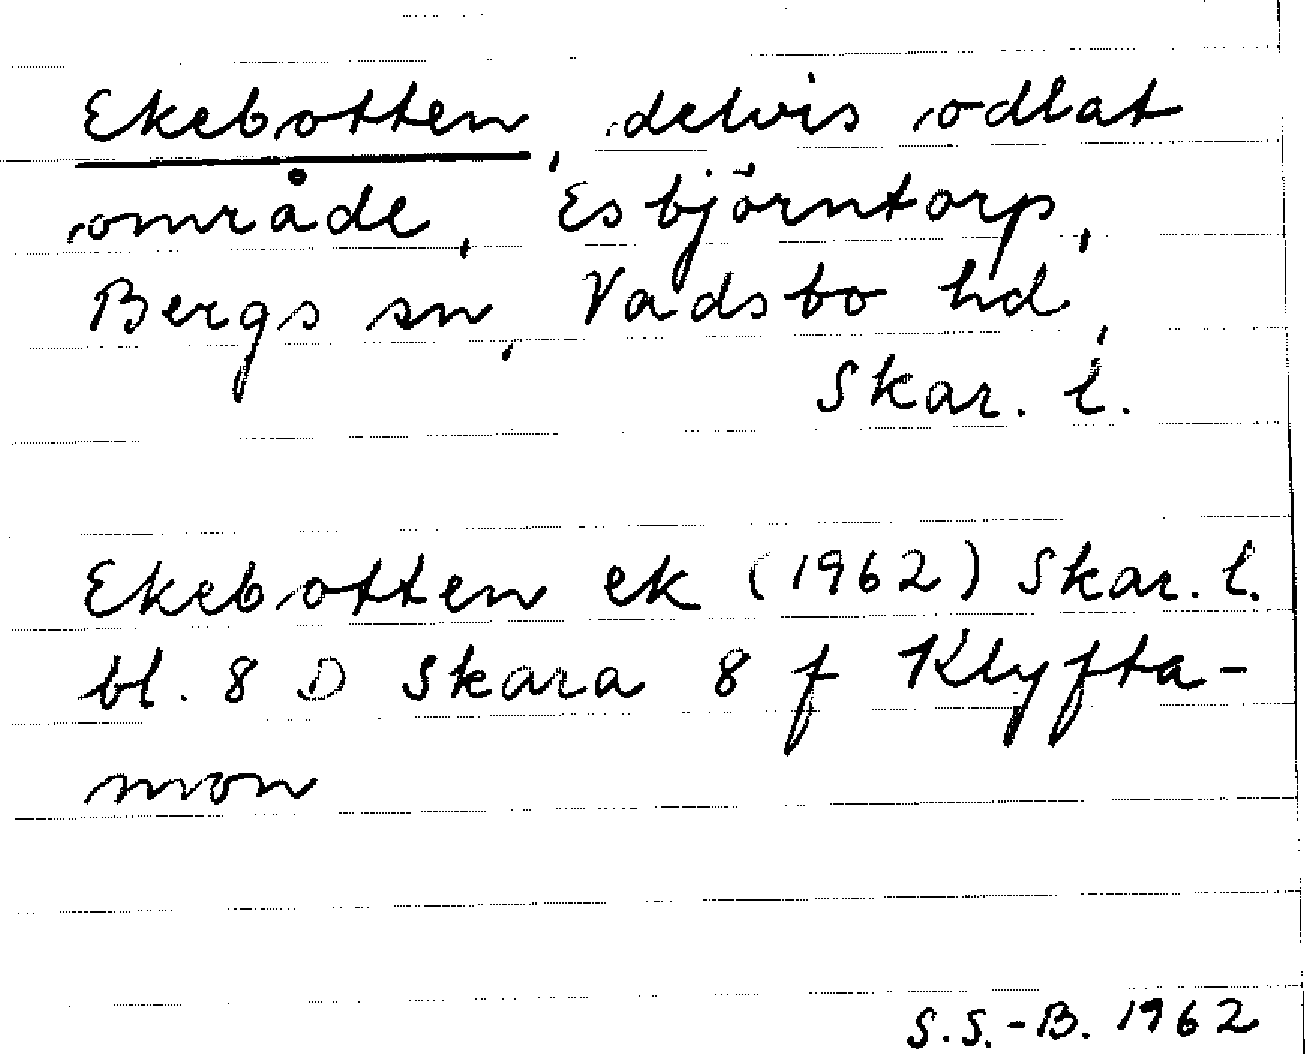 Ekebotten, delvis odlat
område, Esbjörntorp,
Bergs sn, Vadsbo hd,
Skar. l.
Ekebotten ek (1962) Skar. l.
bl. 8 D Skara 8 f Klyfta-
mon
S.S.-B. 1962